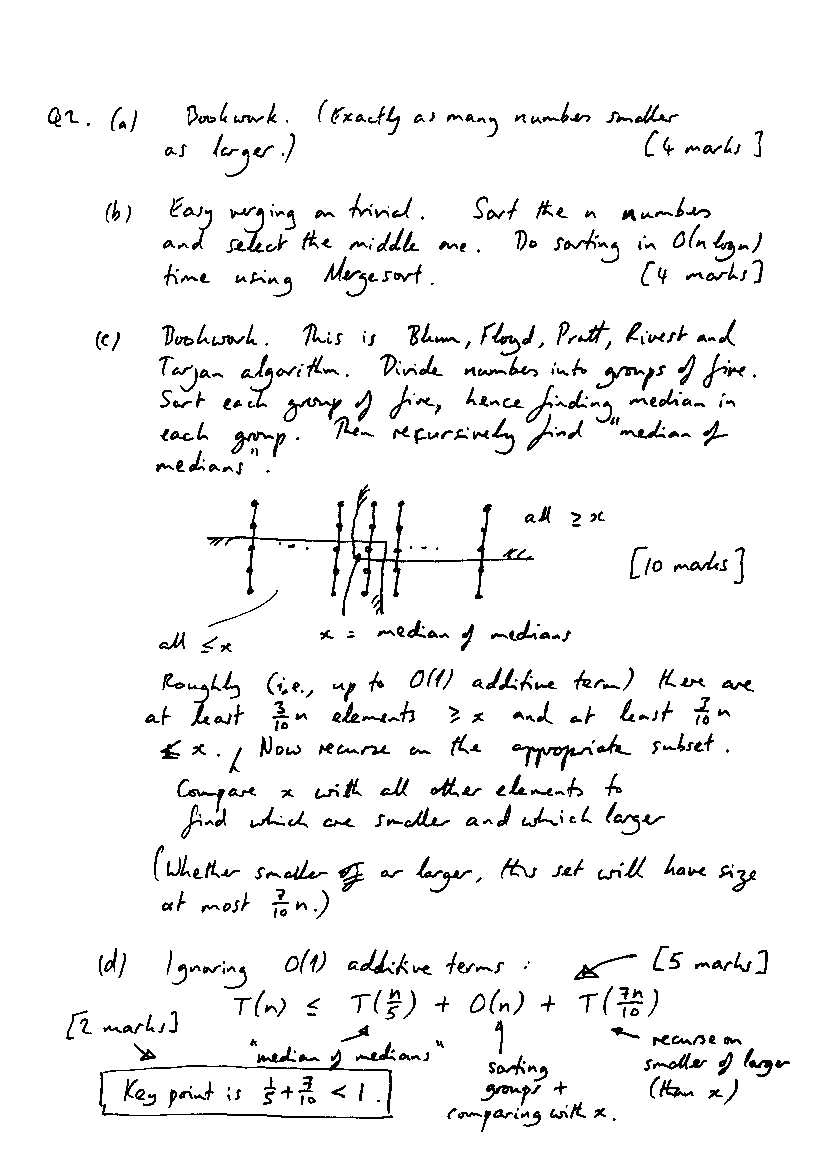 Q2. (a) Bookwork. (Exactly as many numbers smaller
as larger.) [4 marks]
(b) Easy verging on trivial. Sort the n numbers
and select the middle one. Do sorting in O(n log n)
time using Mergesort. [4 marks]
(c) Bookwork. This is Blum, Floyd, Pratt, Rivest and
Tarjan algorithm. Divide numbers into groups of five.
Sort each group of five, hence finding median in
each group. Then recursively find "median of
medians".
all ≥ x
[10 marks]
all ≤ x x = median of medians
Roughly (i.e., up to O(1) additive term) there are
at least 3/10 n elements ≥ x and at least 3/10 n
≤ x. Now recurse on the appropriate subset.
Compare x with all other elements to
find which are smaller and which larger
(Whether smaller or larger, this set will have size
at most 7/10 n.)
(d) Ignoring O(1) additive terms: [5 marks]
T(n) ≤ T(n/5) + O(n) + T(7n/10)
[2 marks]
"median of medians"
sorting
groups +
comparing with x.
recurse on
smaller of larger
(than x)
Key point is 1/5 + 7/10 < 1.